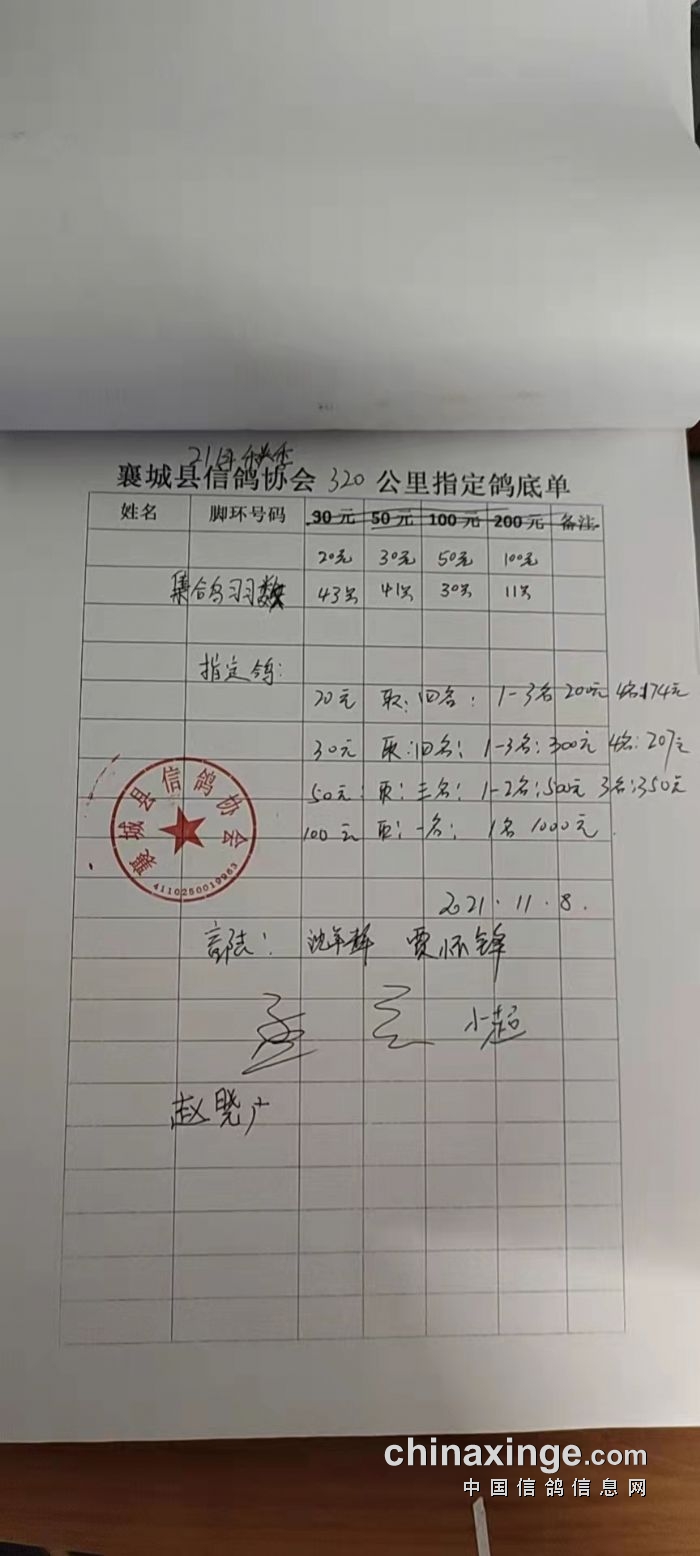 21年秋季
襄城县信鸽协会 320 公里指定鸽底单
姓名 脚环号码 30元 50元 100元 200元 备注
20元 30元 50元 100元
集鸽羽数 43只 41只 30只 11只
指定鸽:
20元 取:四名: 1-3名 200元 4名:174元
30元 取:四名: 1-3名:300元 4名:207元
50元: 取:三名: 1-2名:500元 3名:350元
100元 取:一名: 1名 1000元.
襄城县信鸽协会
4110250019963
2021.11.8.
贾怀锋
小超
赵晓广
chinaxinge.com
中国信鸽信息网